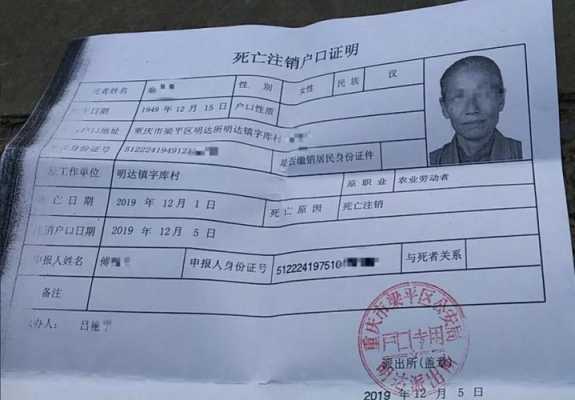 死亡注销户口证明
死者姓名 性别 女性 民族 汉
日期 1949年12月15日 户口性质
户口地址 重庆市梁平区明达所明达镇字库村
身份证号 512224194912 是否缴销居民身份证件
工作单位 明达镇字库村 原职业 农业劳动者
亡日期 2019年12月1日 死亡原因 死亡注销
销户口日期 2019年12月5日
申报人姓名 傅 申报人身份证号 512224197510 与死者关系
备注
办人: 吕
重庆市梁平区公安局
户口专用
派出所(盖章)
明达派出所
2019年12月5日